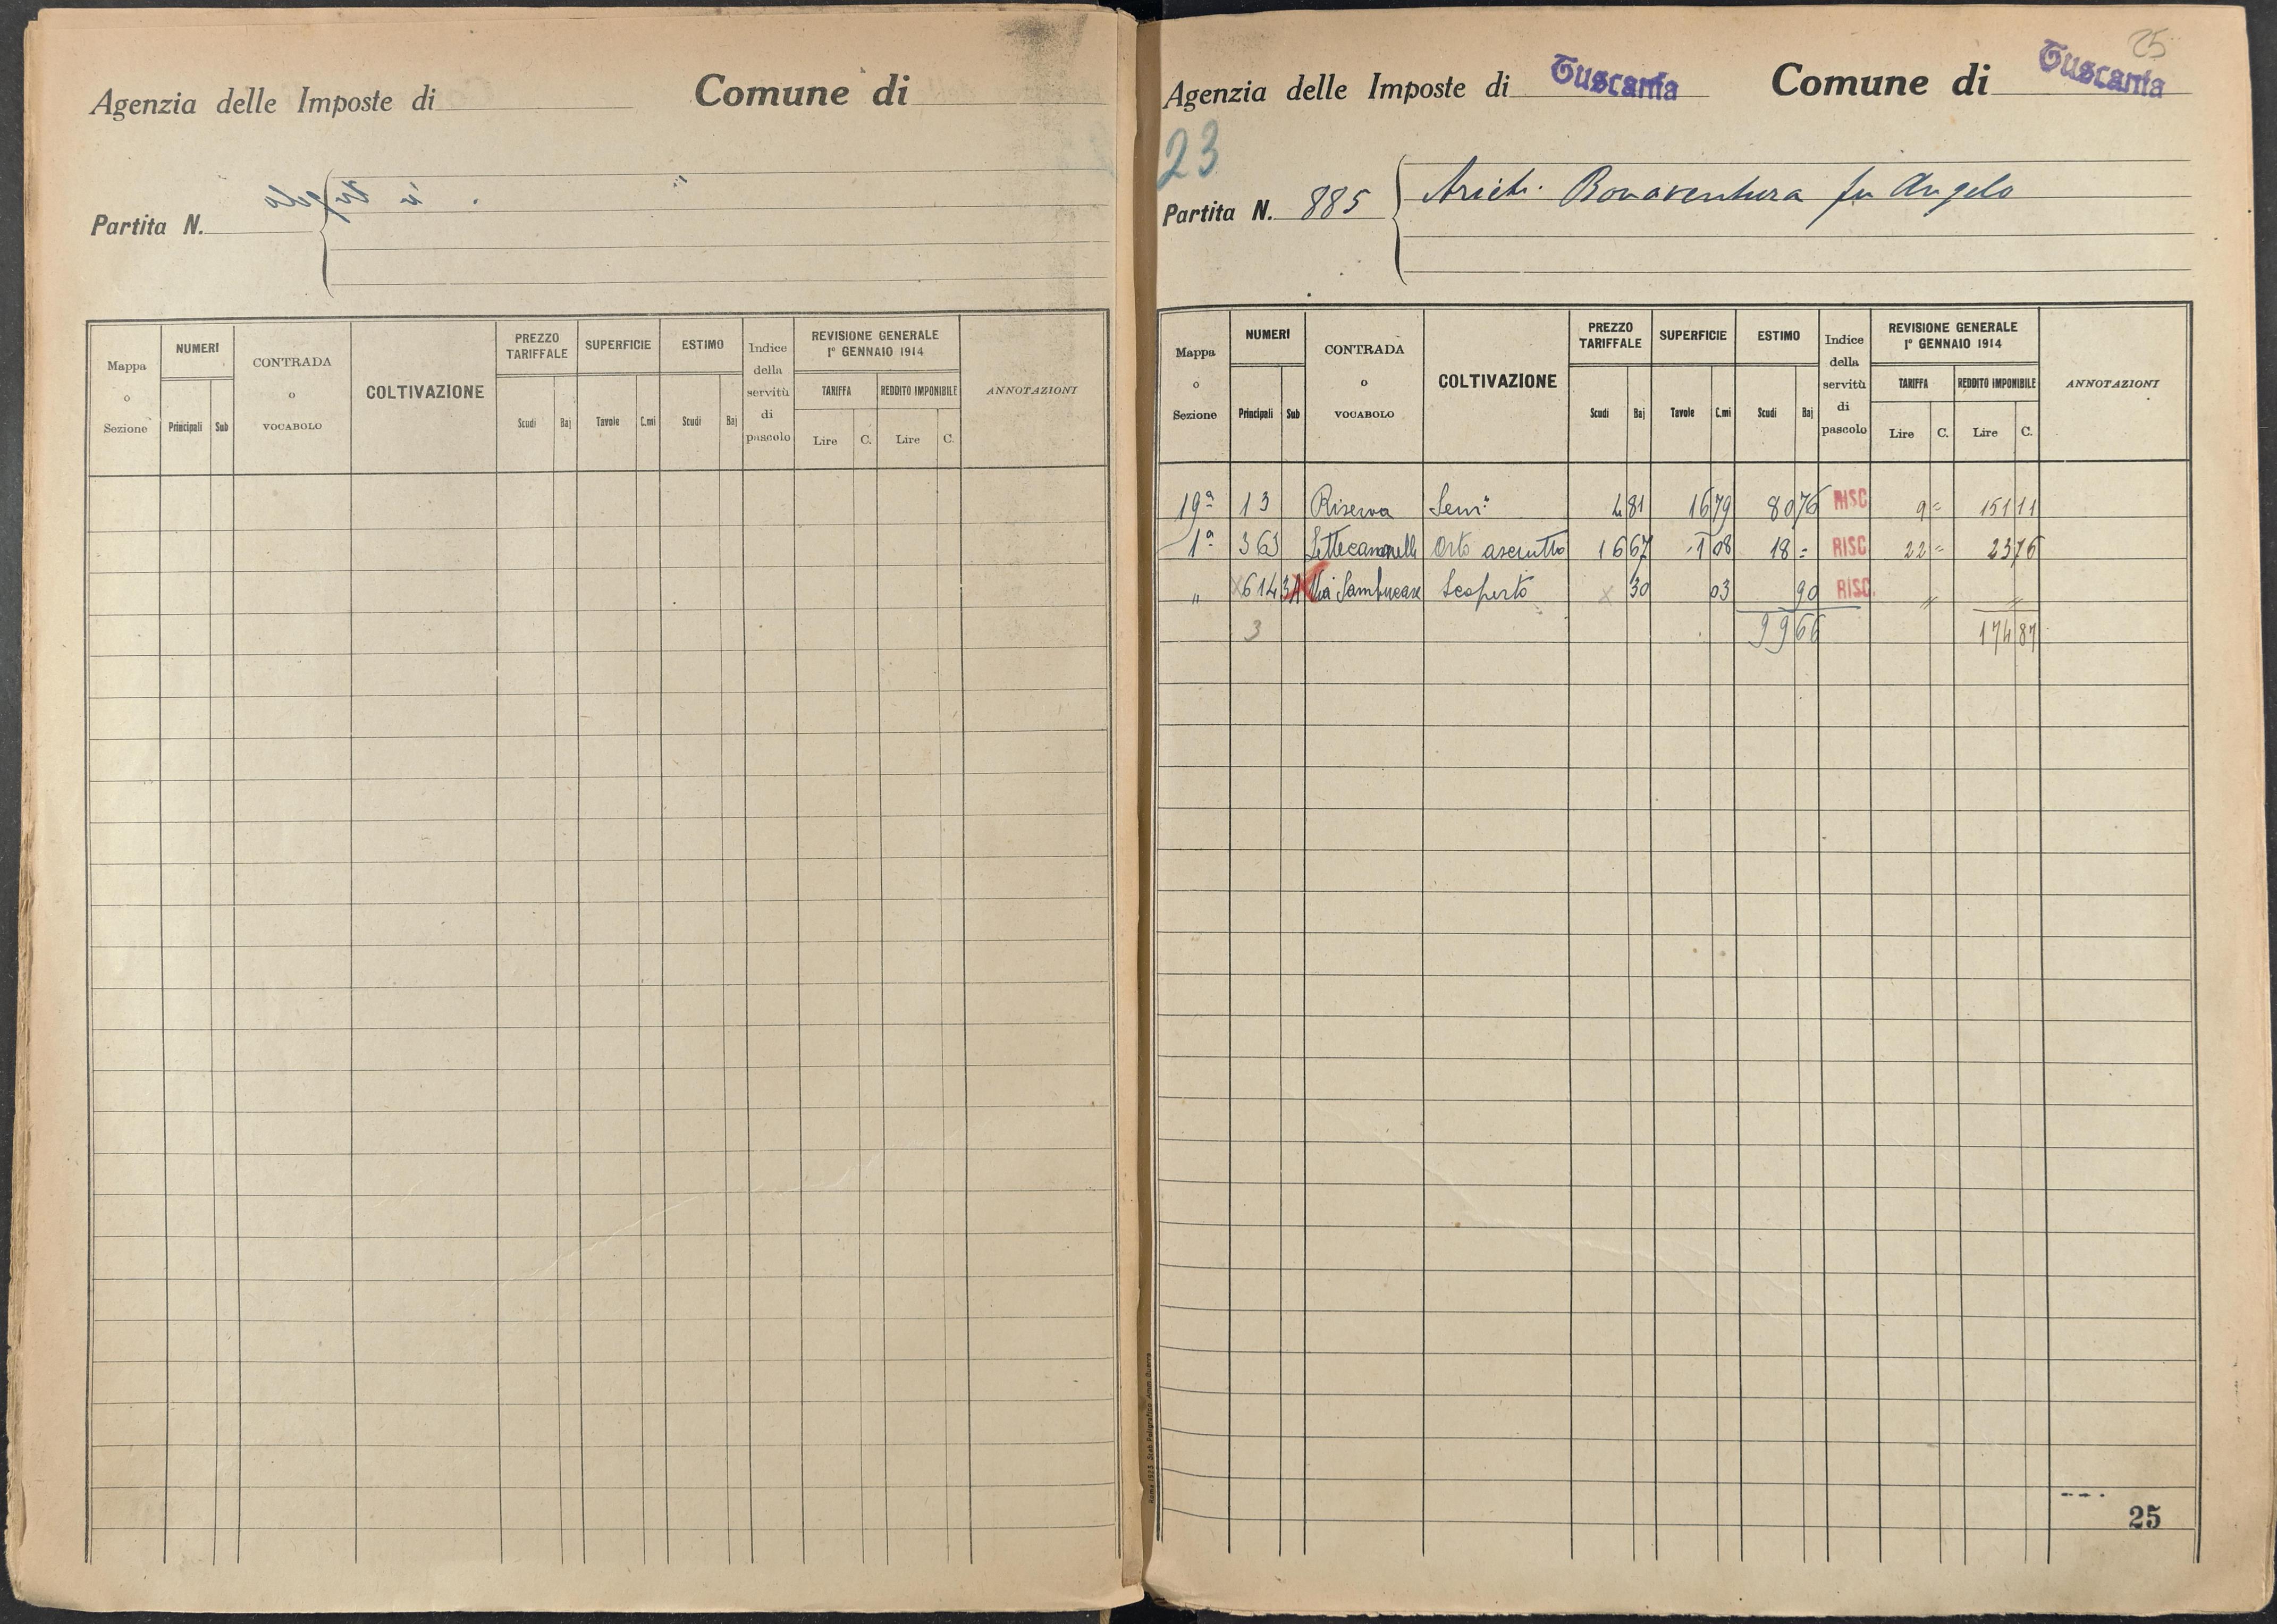 Agenzia delle Imposte di Comune di
Partita N.
Mappa o Sezione NUMERI CONTRADA o VOCABOLO COLTIVAZIONE PREZZO TARIFFALE SUPERFICIE ESTIMO Indice della servitù di pascolo REVISIONE GENERALE 1° GENNAIO 1914 ANNOTAZIONI
TARIFFA REDDITO IMPONIBILE
Principali Sub Scudi Baj Tavole C.mi Scudi Baj Lire C. Lire C.
25
Agenzia delle Imposte di Tuscania Comune di Tuscania
23
Partita N. 885 Bonaventura fu Angelo
Mappa o Sezione NUMERI CONTRADA o VOCABOLO COLTIVAZIONE PREZZO TARIFFALE SUPERFICIE ESTIMO Indice della servitù di pascolo REVISIONE GENERALE 1° GENNAIO 1914 ANNOTAZIONI
TARIFFA REDDITO IMPONIBILE
Principali Sub Scudi Baj Tavole C.mi Scudi Baj Lire C. Lire C.
19ª 13 Riserva Semi: 4 81 16 79 80 76 RISC 9 = 151 11
1ª 363 Settecannelle Orto asciutto 16 67 1 08 18 = RISC 22 = 23 76
" 614 3 Via Scoperto 30 03 90 RISC. " "
3 99 66 174 87
25